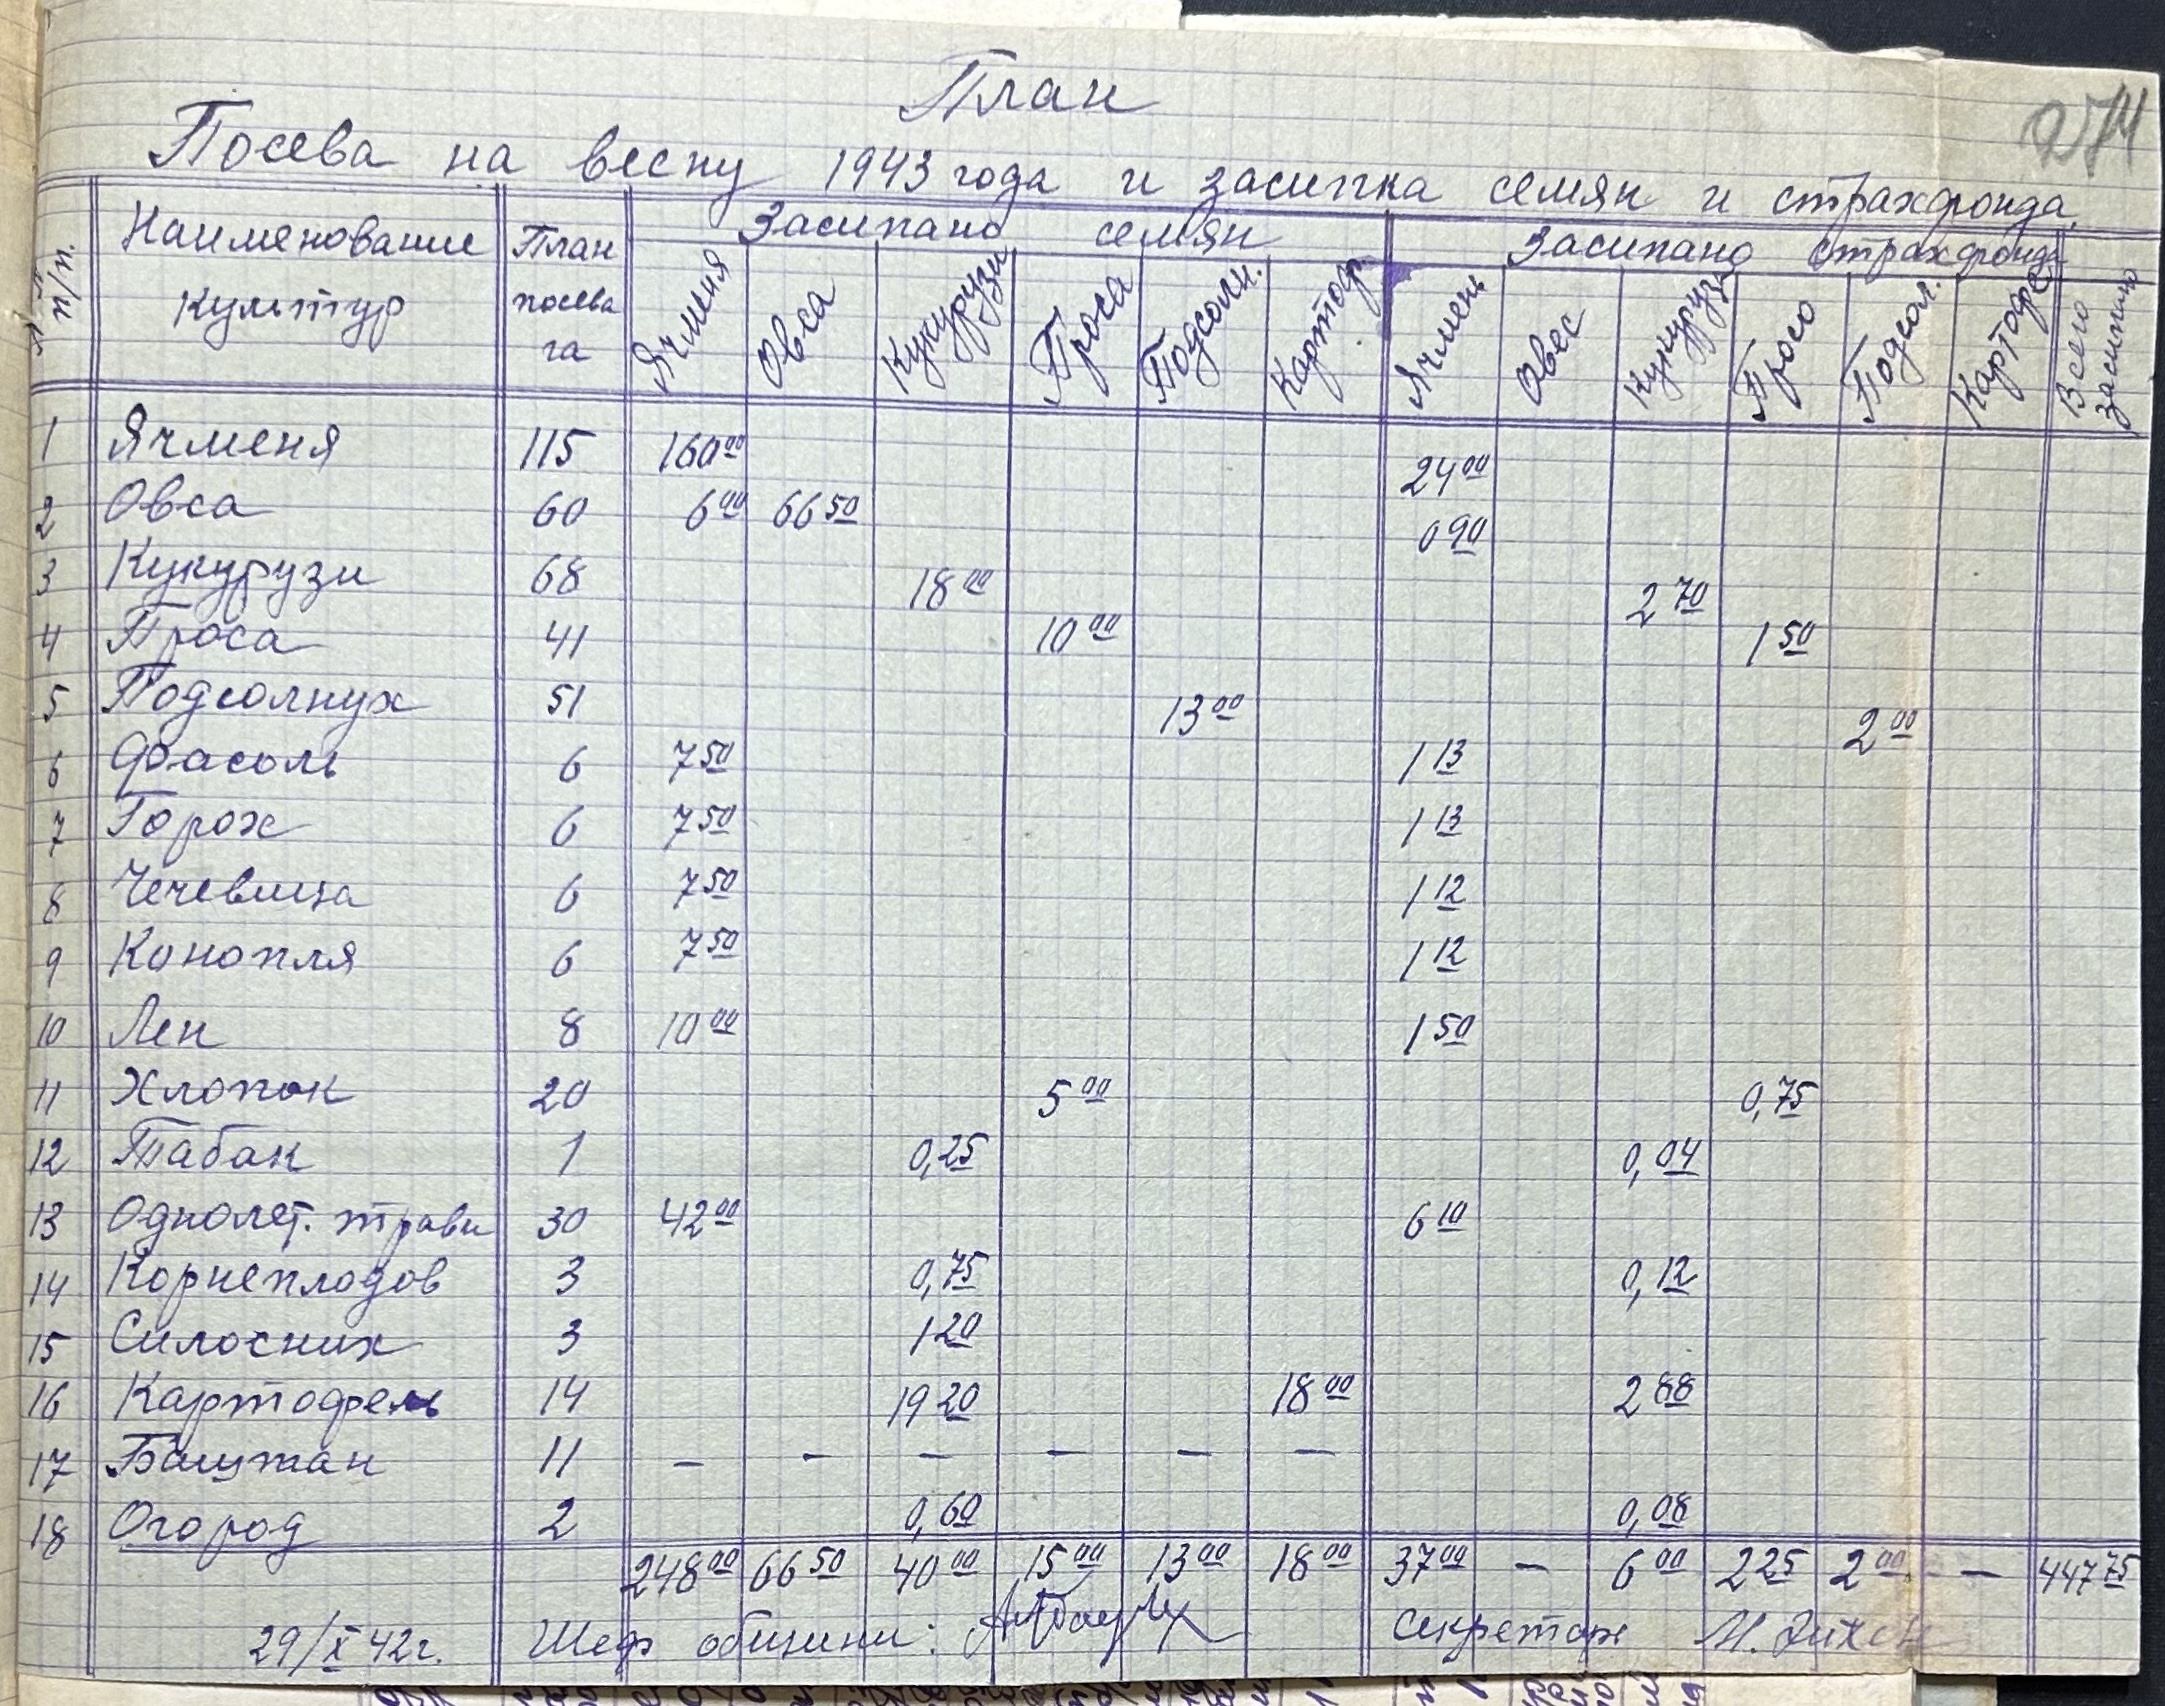 План
274
Посева на весну 1943 года и засипка семян и страхфонда.
№№ п/п. Наименование культур План посева га Засипано семян Засипано страхфонда Всего засипано
Ячменя Овса Кукурузи Проса Подсолн. Картоф. Ячмень Овес Кукурузи Просо Подсол. Картофел
1 Ячменя 115 160 00 24 00
2 Овса 60 6 00 66 50 0 90
3 Кукурузи 68 18 00 2 70
4 Проса 41 10 00 1 50
5 Подсолнух 51 13 00 2 00
6 Фасоль 6 7 50 1 13
7 Горох 6 7 50 1 13
8 Чечевица 6 7 50 1 12
9 Конопля 6 7 50 1 12
10 Лен 8 10 00 1 50
11 Хлопок 20 5 00 0,75
12 Табак 1 0,25 0,04
13 Однолет. трави 30 42 00 6 10
14 Корнеплодов 3 0,75 0,12
15 Силосних 3 1 20
16 Картофель 14 19 20 18 00 2 88
17 Баштан 11 — — — — — —
18 Огород 2 0,60 0,08
248 00 66 50 40 00 15 00 13 00 18 00 37 00 — 6 00 2 25 2 00 — 447 75
29/X 42г. Шеф общини: Секретарь